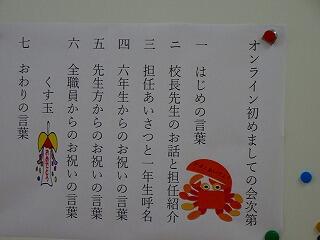 オンライン初めましての会次第
一 はじめの言葉
二 校長先生のお話と担任紹介
三 担任あいさつと一年生呼名
四 六年生からのお祝いの言葉
五 先生方からのお祝いの言葉
六 全職員からのお祝いの言葉
くす玉
七 おわりの言葉